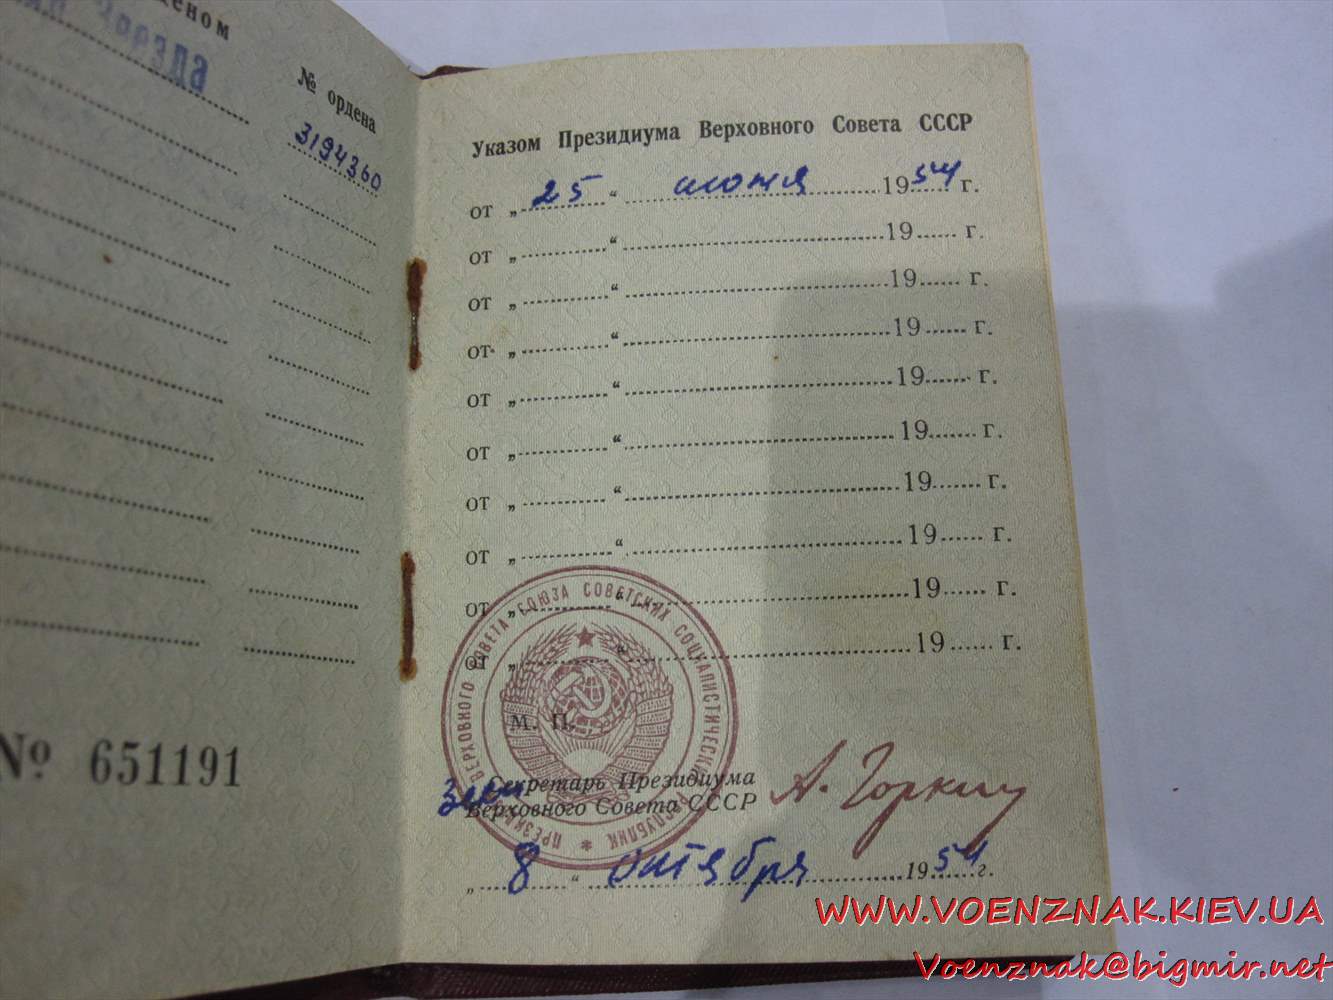 еном
Звезда
№ ордена
3194360
№ 651191
Указом Президиума Верховного Совета СССР
от „ 25 “ июня 1954 г.
от „ “ 19 г.
от „ “ 19 г.
от „ “ 19 г.
от „ “ 19 г.
от „ “ 19 г.
от „ “ 19 г.
от „ “ 19 г.
от „ “ 19 г.
от „ “ 19 г.
ВЕРХОВНОГО СОВЕТА СОЮЗА СОВЕТСКИХ СОЦИАЛИСТИЧЕСКИХ РЕСПУБЛИК * ПРЕЗИДИУМ
М. П.
Зам. Секретарь Президиума
Верховного Совета СССР А. Горкин
„ 8 “ октября 1954 г.
WWW.VOENZNAK.KIEV.UA
Voenznak@bigmir.net